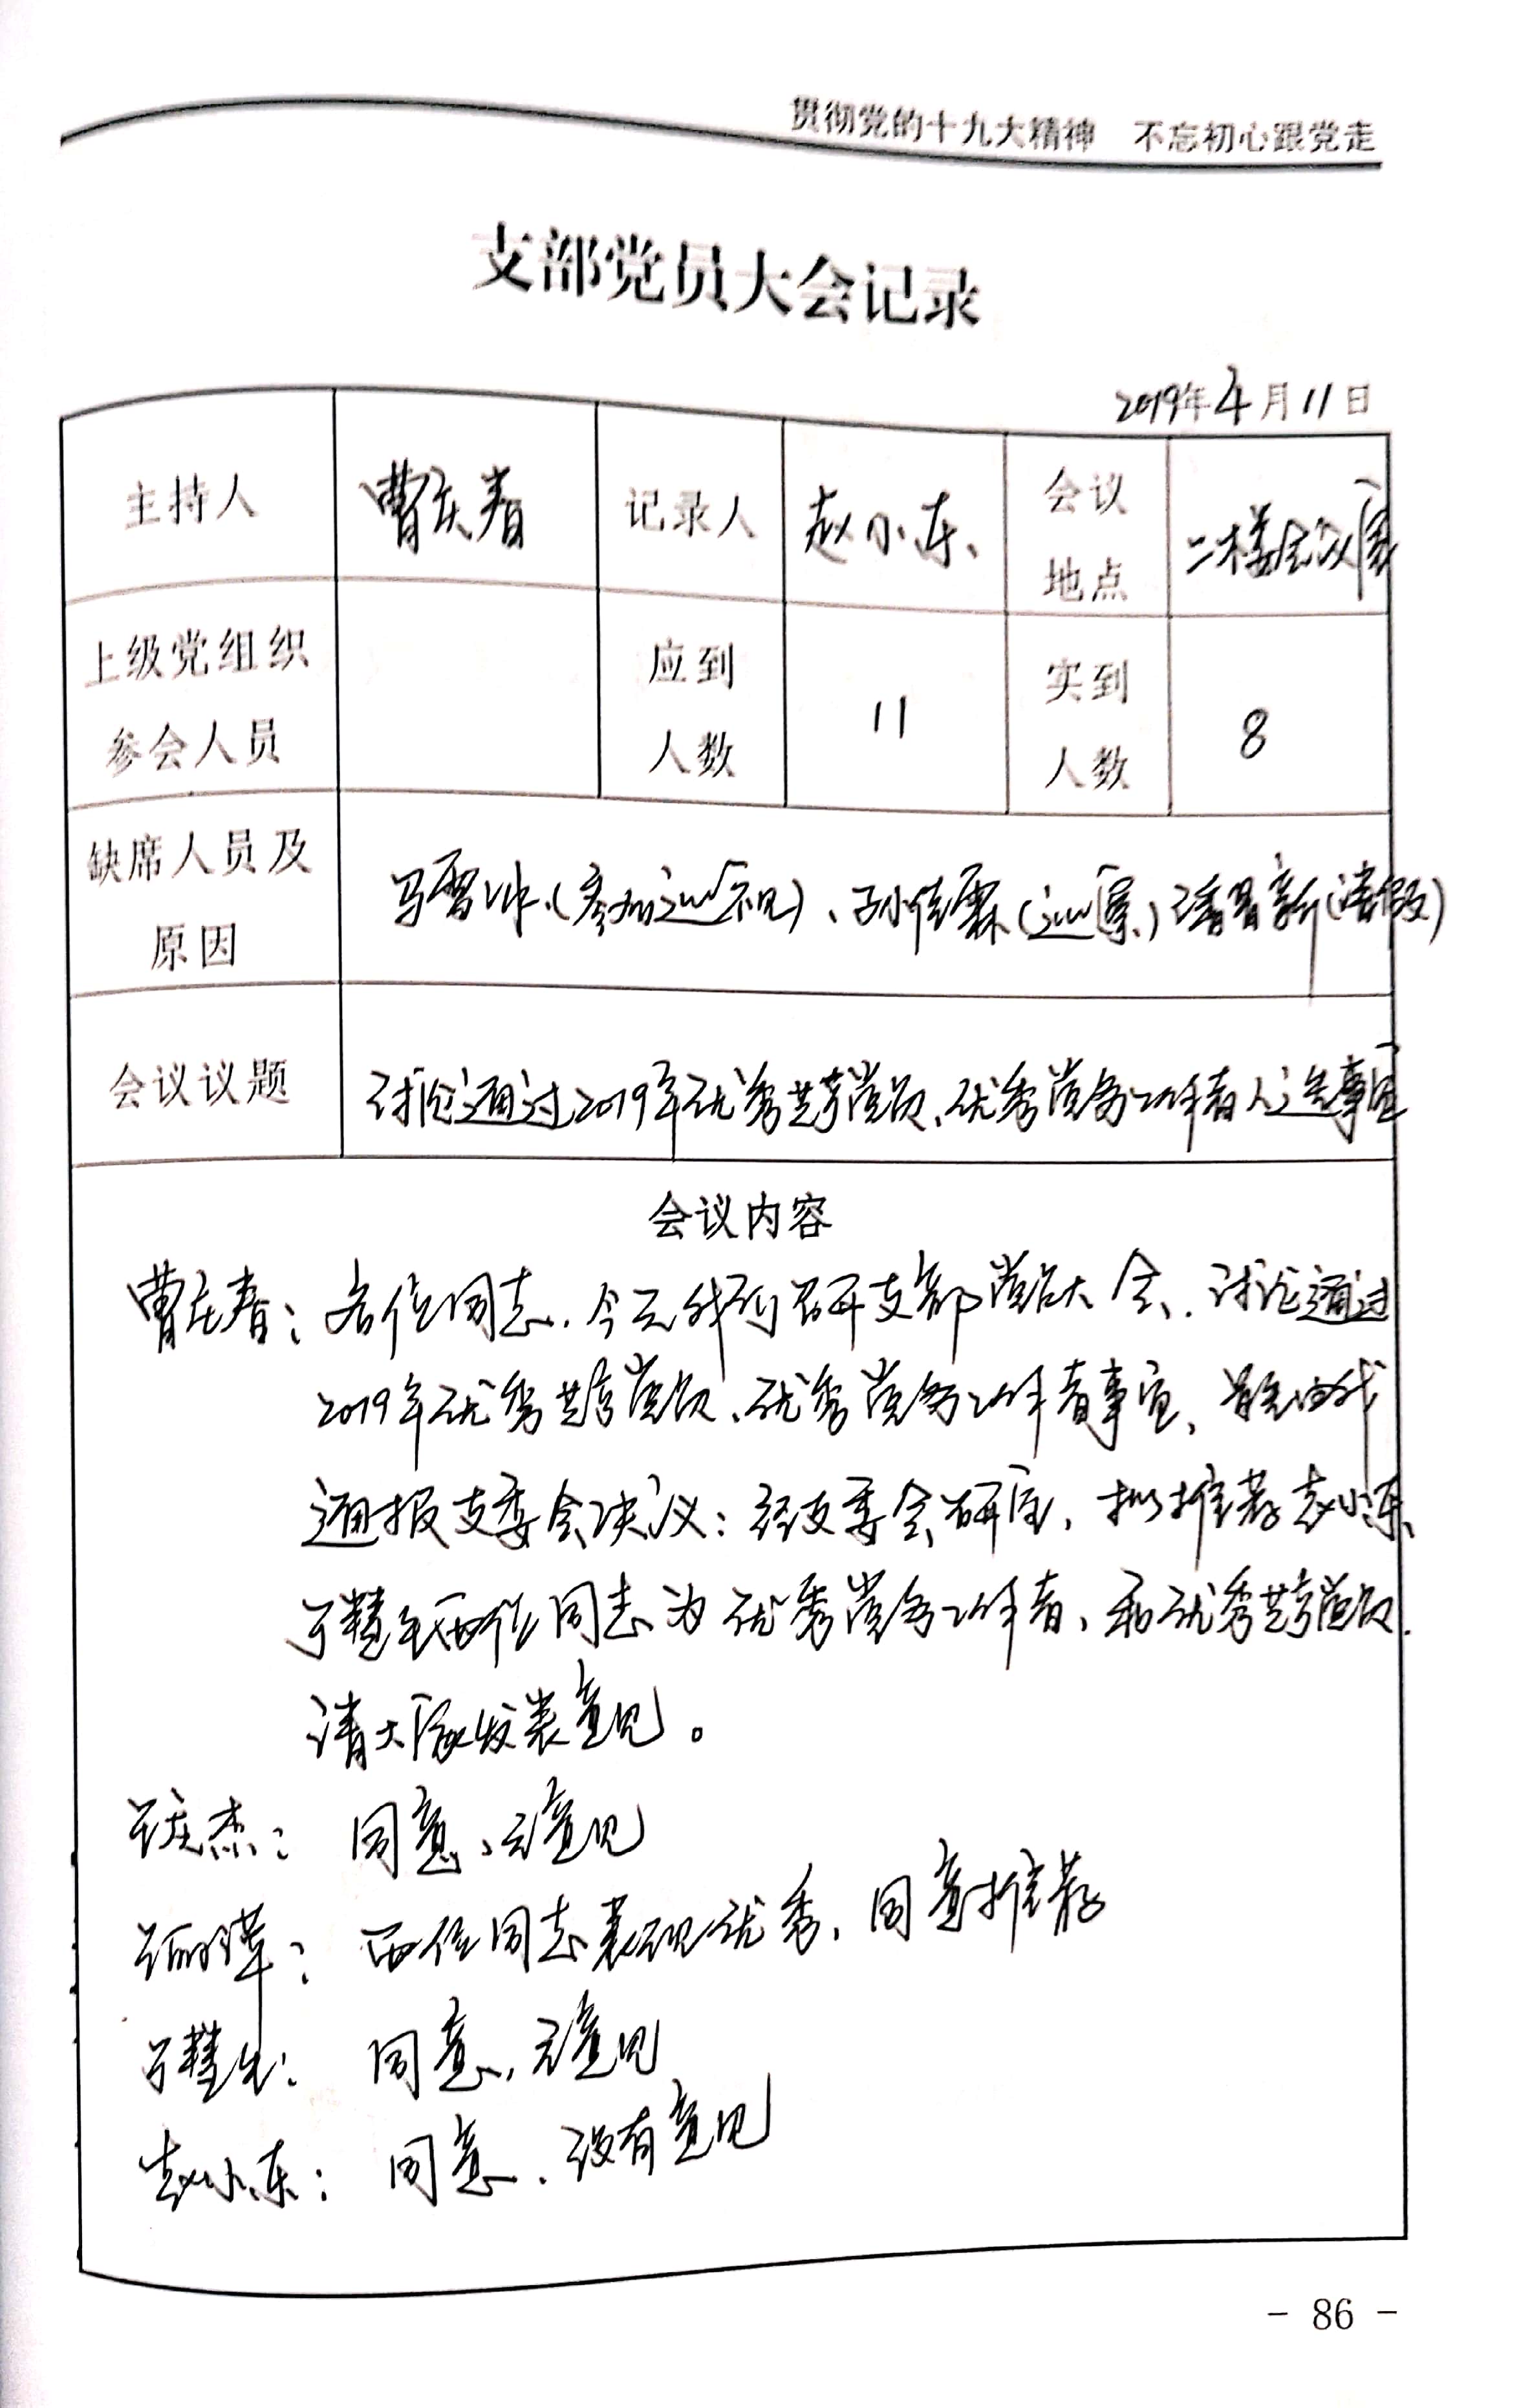 贯彻党的十九大精神 不忘初心跟党走
支部党员大会记录
2019年4月11日
主持人 曹庆春 记录人 赵小东 会议地点 二楼会议室
上级党组织参会人员 应到人数 11 实到人数 8
缺席人员及原因 (参加巡视)、孙佳霖(巡察)(请假)
会议议题 讨论通过2019年优秀共产党员、优秀党务工作者人选事宜
会议内容
曹庆春:各位同志,今天我们召开支部党员大会,讨论通过
2019年优秀共产党员、优秀党务工作者事宜,首先由我
通报支委会决议:经支委会研究,拟推荐赵小东、
两位同志为优秀党务工作者,和优秀共产党员.
请大家发表意见。
杰:同意,无意见
:两位同志表现优秀,同意推荐
:同意,无意见
赵小东:同意,没有意见
- 86 -